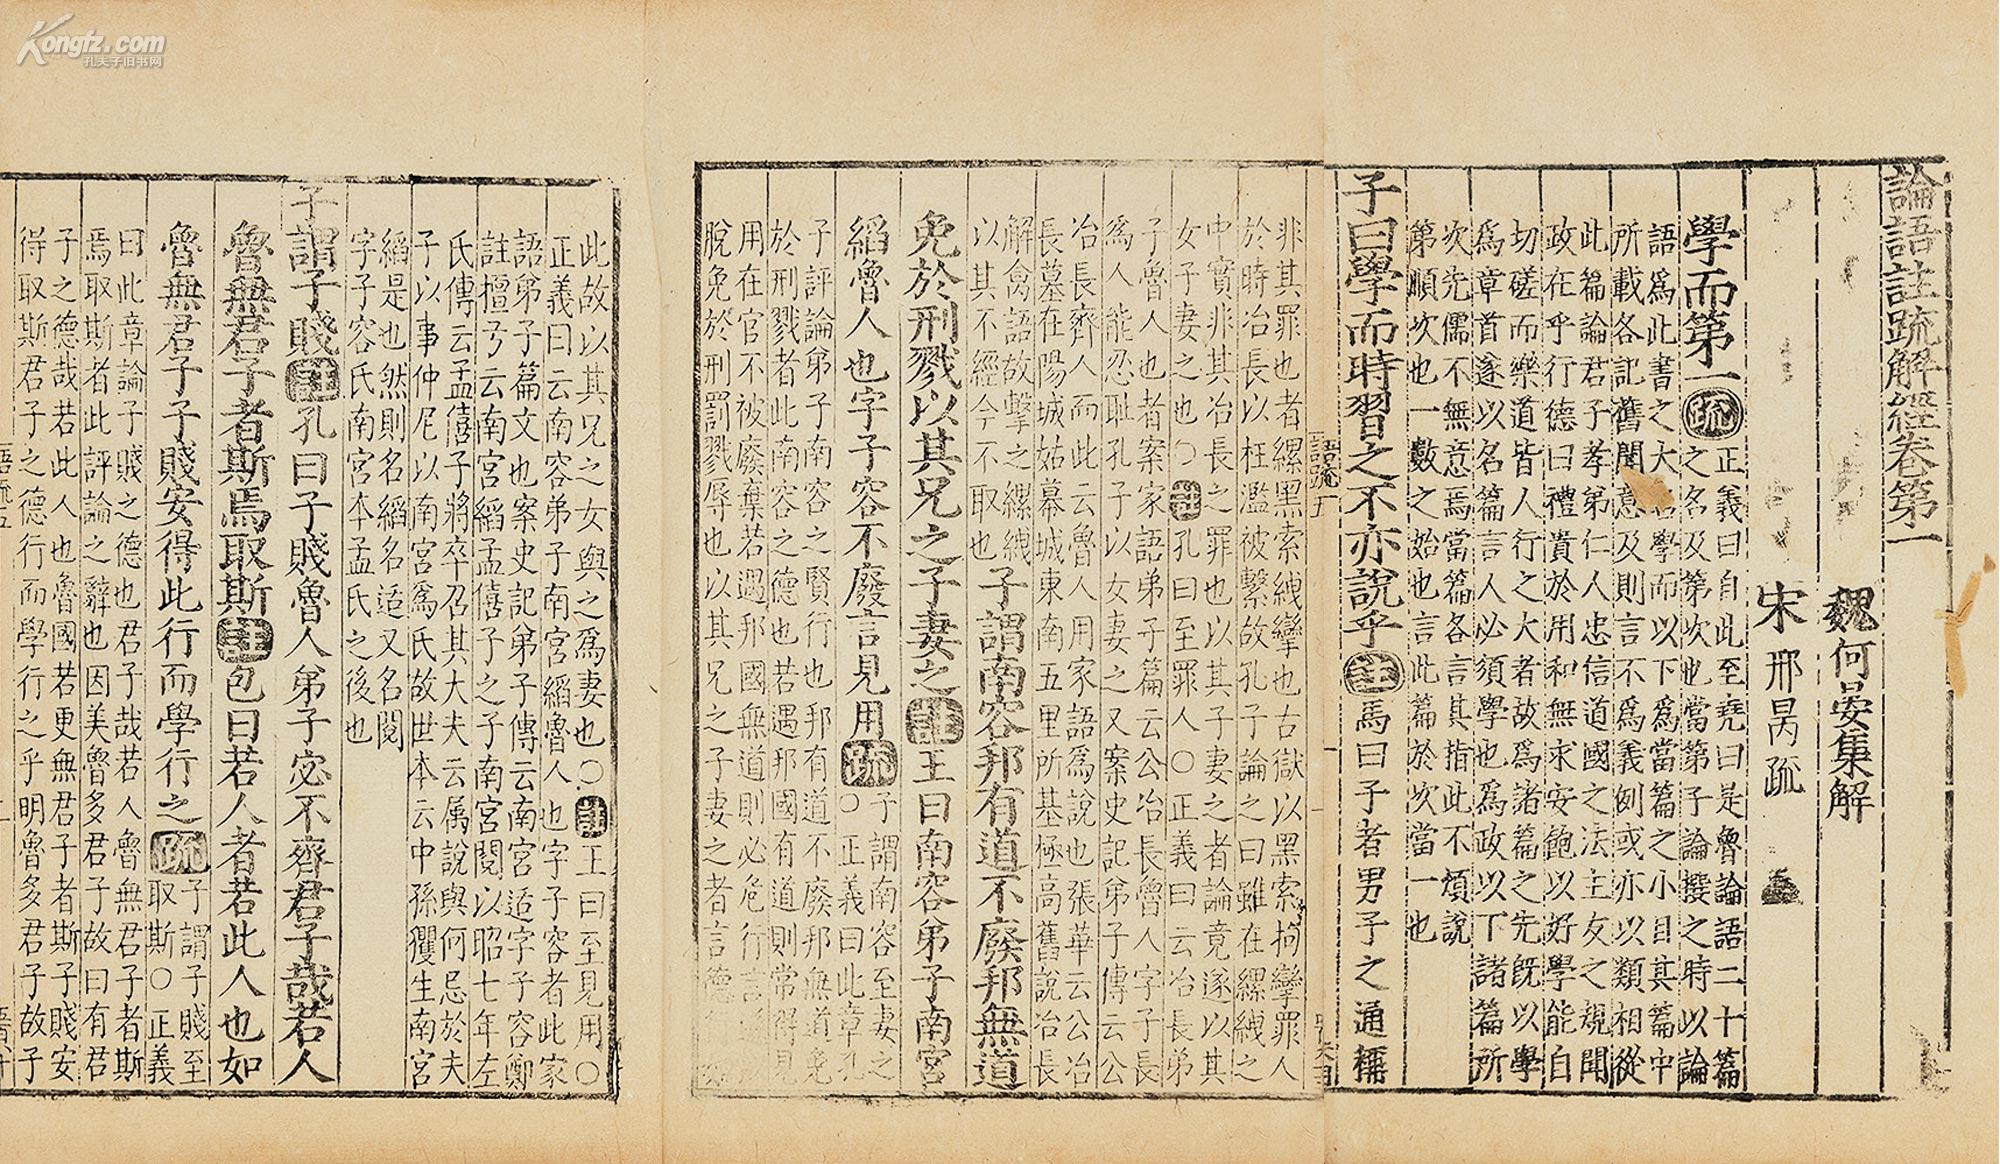 Kongfz.com
孔夫子旧书网
論語註疏解經卷第一
魏何晏集解
宋邢昺疏
學而第一疏正義曰自此至堯曰是魯論語二十篇
之名及第次也當弟子論撰之時以論
語爲此書之大名學而以下爲當篇之小目其篇中
所載各記舊聞意及則言不爲義例或亦以類相從
此篇論君子孝弟仁人忠信道國之法主友之規聞
政在乎行德曰禮貴於用和無求安飽以好學能自
切磋而樂道皆人行之大者故爲諸篇之先旣以學
爲章首遂以名篇言人必須學也爲政以下諸篇所
次先儒不無意焉當篇各言其指此不煩說
第順次也一數之始也言此篇於次當一也
子曰學而時習之不亦說乎註馬曰子者男子之通稱
非其罪也者縲黑索絏攣也古獄以黑索拘攣罪人
於時冶長以枉濫被繫故孔子論之曰雖在縲絏之
中實非其冶長之罪也以其子妻之者論竟遂以其
女子妻之也○註孔曰至罪人○正義曰云冶長弟
子魯人也者案家語弟子篇云公冶長魯人字子長
爲人能忍恥孔子以女妻之又案史記弟子傳云公
冶長齊人而此云魯人用家語爲說也張華云公冶
長墓在陽城姑幕城東南五里所基極高舊說冶長
解禽語故繫之縲絏
以其不經今不取也子謂南容邦有道不廢邦無道
免於刑戮以其兄之子妻之註王曰南容弟子南宮
縚魯人也字子容不廢言見用疏子謂南容至妻之
○正義曰此章孔
子評論弟子南容之賢行也邦有道不廢邦無道免
於刑戮者此南容之德也若遇邦國有道則常得見
用在官不被廢棄若遇邦國無道則必危行言
脫免於刑罰戮辱也以其兄之子妻之者言德
此故以其兄之女與之爲妻也○註王曰至見用○
正義曰云南容弟子南宮縚魯人也字子容者此家
語弟子篇文也案史記弟子傳云南宮适字子容鄭
註檀弓云南宮縚孟僖子之子南宮閱以昭七年左
氏傳云孟僖子將卒召其大夫云属說與何忌於夫
子以事仲尼以南宮爲氏故世本云中孫玃生南宮
縚是也然則名縚名适又名閱
字子容氏南宮本孟氏之後也
子謂子賤註孔曰子賤魯人弟子宓不齊君子哉若人
魯無君子者斯焉取斯註包曰若人者若此人也如
魯無君子子賤安得此行而學行之疏子謂子賤至
取斯○正義
曰此章論子賤之德也君子哉若人魯無君子者斯
焉取斯者此評論之辭也因美魯多君子故曰有君
子之德哉若此人也魯國若更無君子者斯子賤安
得取斯君子之德行而學行之乎明魯多君子故子